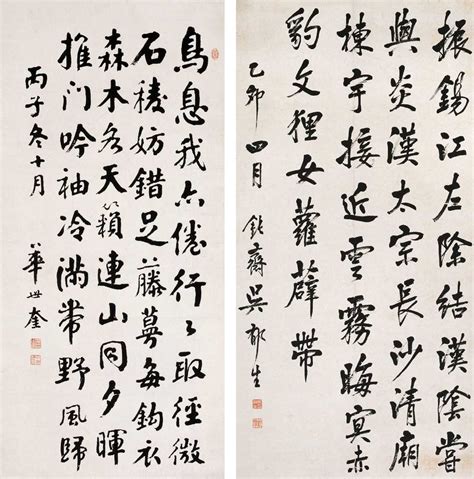 振錫江左除結漢陰嘗
與炎漢太宗長沙清廟
棟宇接近雲霧晦冥赤
豹文狸女蘿薜帶
乙卯四月 鈍齋吳郁生
鳥息我亦倦行〻取徑微
石棱妨錯足藤蔓每鉤衣
森木各天籟連山同夕暉
推門吟袖冷滿帶野風歸
丙子冬十月 華世奎